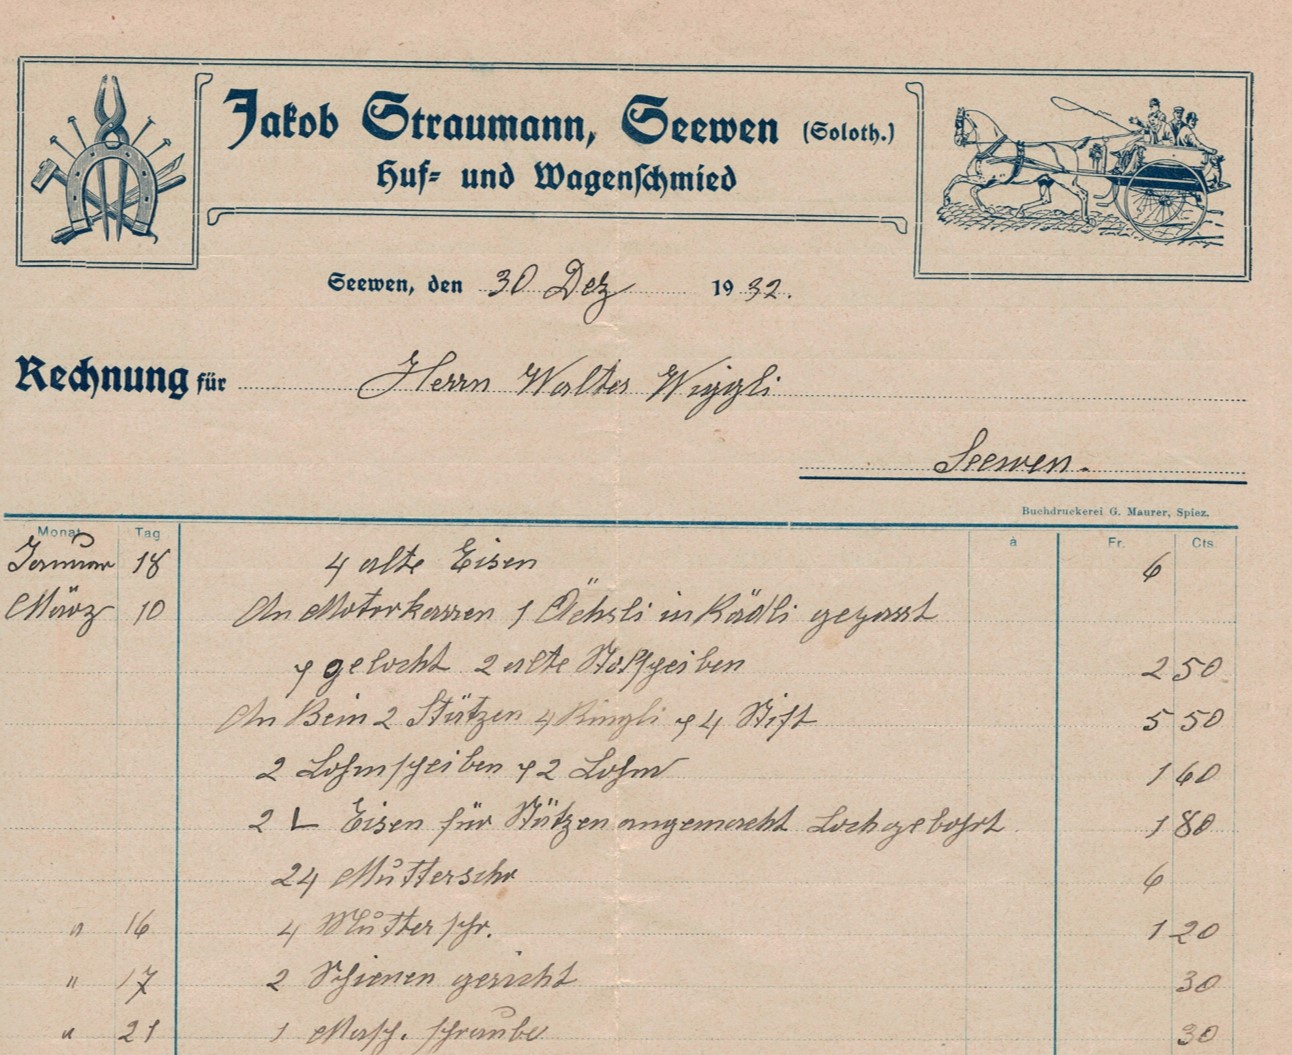 Jakob Straumann, Seewen (Soloth.)
Huf- und Wagenschmied
Seewen, den 30 Dez 1932.
Rechnung für Herrn Walter Wiggli
Seewen.
Buchdruckerei G. Maurer, Spiez.
Monat Tag à Fr. Cts.
Januar 18 4 alte Eisen 6
März 10 An Motorkarren 1 Öchsli in Rädli gepasst
& gelocht 2 alte 2 50
An Bein 2 Stützen 4 Ringli & 4 Stift 5 50
2 Lohnscheiben & 2 Lohn 1 60
2 L Eisen für Stützen angemacht Loch gebohrt 1 80
24 Mutterschr 6
" 16 4 Mutterschr. 1 20
" 17 2 Schienen gericht 30
" 21 1 Masch. schraube 30